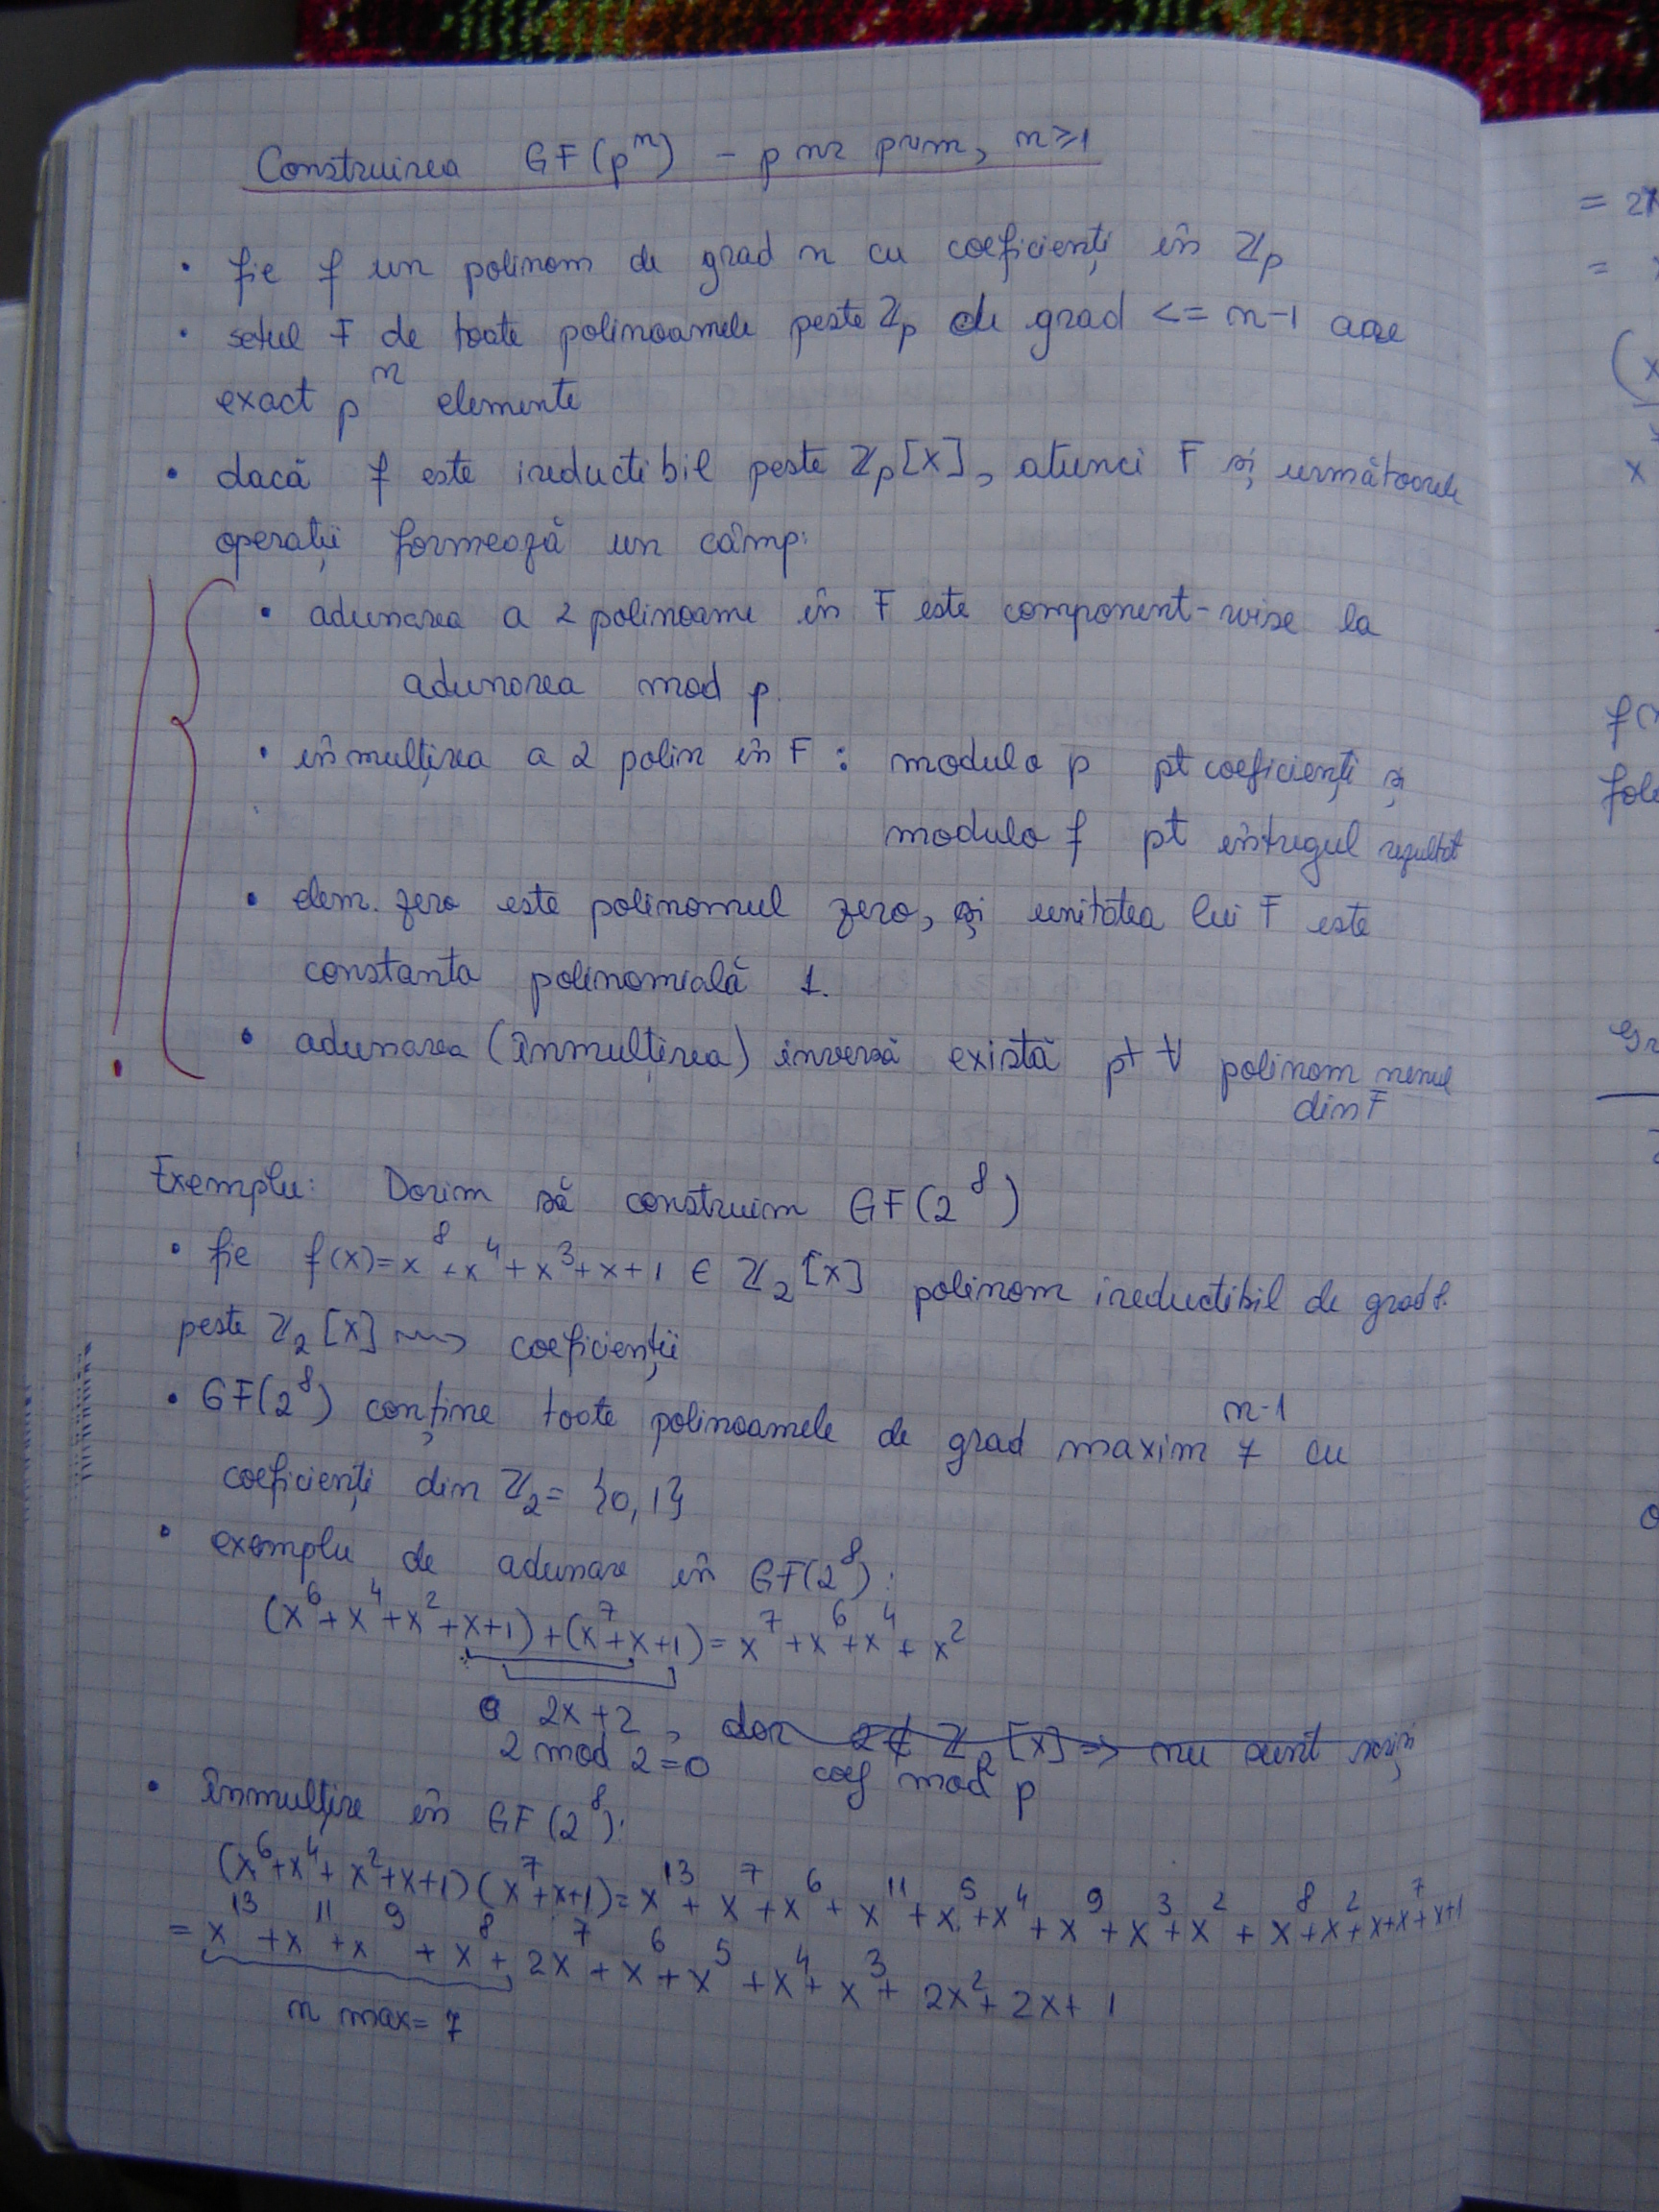 Construirea GF(p^n) - p nr prim, n≥1
• fie f un polinom de grad n cu coeficienți în ℤp
• setul F de toate polinoamele peste ℤp de grad <= n-1 are
exact p^n elemente
• dacă f este ireductibil peste ℤp[x], atunci F și următoarele
operații formează un câmp:
• adunarea a 2 polinoame în F este component-wise la
adunarea mod p.
• înmulțirea a 2 polin în F : modulo p pt coeficienți și
modulo f pt întregul rezultat
• elem. zero este polinomul zero, și unitatea lui F este
constanta polinomială 1.
• adunarea (înmulțirea) inversă există pt ∀ polinom nenul
din F
Exemplu: Dorim să construim GF(2^8)
• fie f(x)=x^8+x^4+x^3+x+1 ∈ ℤ2[x] polinom ireductibil de grad 8.
peste ℤ2[x] ⇝ coeficienții
• GF(2^8) conține toate polinoamele de grad maxim 7 cu
n-1
coeficienți din ℤ2= {0,1}
• exemplu de adunare în GF(2^8):
(x^6+x^4+x^2+x+1)+(x^7+x+1)=x^7+x^6+x^4+x^2
2x+2, dar 2∉ℤ2[x]=> nu sunt scriși
2 mod 2=0 coef mod p
• înmulțire în GF(2^8):
(x^6+x^4+x^2+x+1)(x^7+x+1)=x^13+x^7+x^6+x^11+x^5+x^4+x^9+x^3+x^2+x^8+x^2+x+x^7+x+1
=x^13+x^11+x^9+x^8+2x^7+x^6+x^5+x^4+x^3+2x^2+2x+1
n max=7